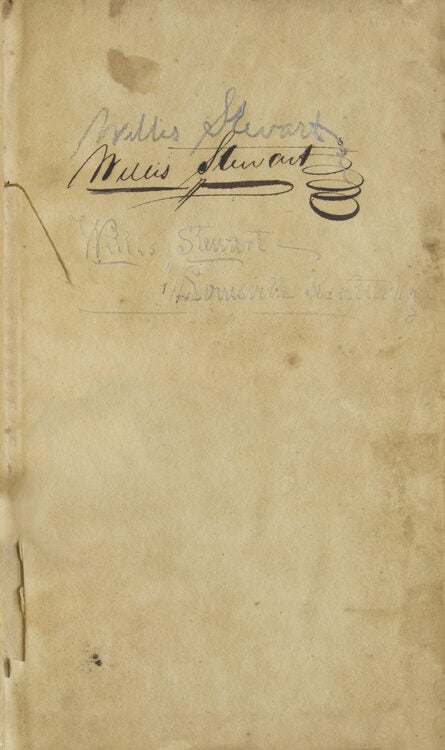 Willis Stewart
Willis Stewart
Willis Stewart
Louisville Kentucky